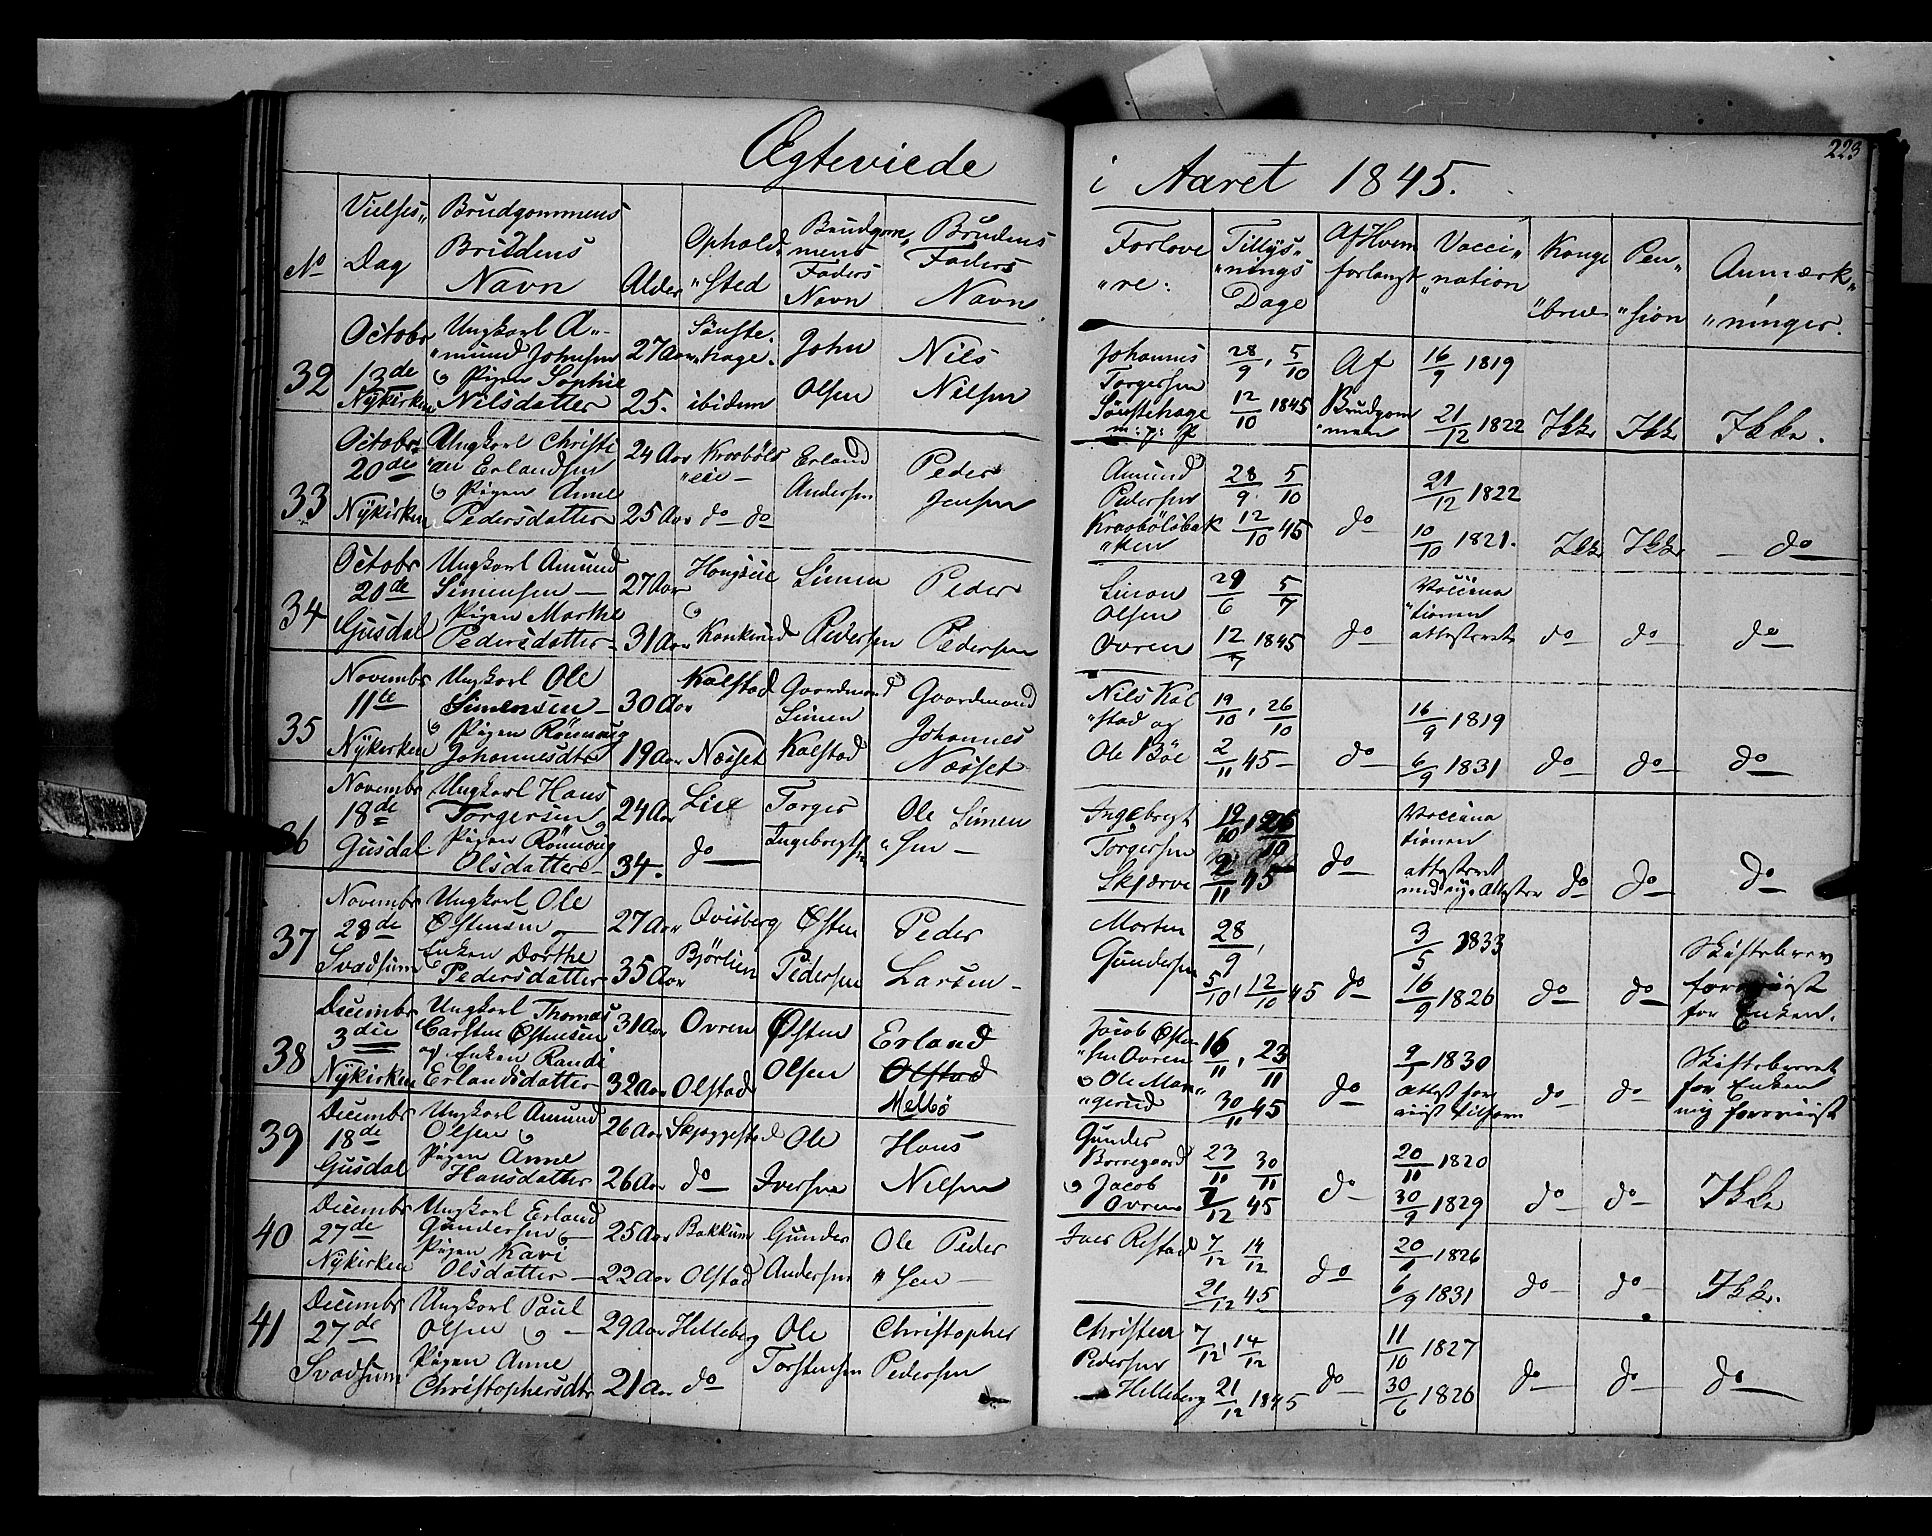 Ægteviede
i Aaret 1845.
223
No
Vielses„
Dag
Brudgommens
Brudens
Navn
Alder
Ophold„
„Sted
Brudgom„
mens
Faders
Navn
Brudens
Faders
Navn
Forlove
„re:
Tillys„
„nings
Dage
Af Hvem
forlangt
Vacci„
„nation
Kange
„brev
Pen„
„sion
Anmærk„
„ninger.
32
Octobr
13de
Nykirken
Ungkarl A„
„mund Johnsen
Pigen Sophie
Nilsdatter
27 Aar
25.
Sønste„
„hage.
ibidem
John
Olsen
Nils
Nilsen
Johannes
Torgersen
Sønstehage
28/9, 5/10
12/10 1845
Af
Brudgom„
„men
16/9 1819
21/12 1822
Ikke
Ikke
Ikke.
33
Octobr
20de
Nykirken
Ungkarl Christi
„an Erlandsen
Pigen Anne
Pedersdatter
24 Aar
25 Aar
Kraabøls
„eie –
do do
Erland
Andersen
Peder
Jensen
Amund
Pedersen
Kraabølsbak
„ken
28/9, 5/10
12/10 45
do
21/12 1822
10/10 1821.
Ikke
Ikke
– do
34
Octobr
20de
Gusdal
Ungkarl Amund
Simensen –
Pigen Marthe
Pedersdatter –
27 Aar
31 Aar
Kankerud
Simen
Pedersen
Peder
Pedersen
Simon
Olsen
Ovren
29/6 5/7
12/7 1845
do
Vaccina
„tionen
attesteret
do
do
do
35
Novembr
11te
Nykirken
Ungkarl Ole
Simensen –
Pigen Rønnoug
Johannesdtr
30 Aar
19 Aar
Kalstad
Næsset
Gaardmand
Simen
Kalstad
Gaardmand
Johannes
Næsset
Nils Kal
„stad og
Ole Bøe
19/10, 26/10
2/11 45 –
do
16/9 1819
6/9 1831
do
do
do
36
Novembr
18de
Gusdal
Ungkarl Hans
Torgersen
Pigen Rønnoug
Olsdatter –
24 Aar
34.
Lie
do
Torger
Ingebregtsen
Ole Simen
„sen –
Ingebregt
Torgersen
Skjærve
19/10, 26/10
2/11 45
do
Vaccina
tionen
attesteret
do
do
do
37
Novembr
28de
Svadsum
Ungkarl Ole
Østensen
Enken Dorthe
Pedersdatter
27 Aar
35 Aar
Qvisberg
Bjørlien
Østen
Pedersen
Peder
Larsen –
Morten
Gundersen
28/9,
5/10, 12/10 45
do
3/5 1833
16/9 1826
do
do
Skiftebrev
foreviist
for Enken.
38
Decembr
3die
Nykirken
Ungkarl Thomas
Carsten Østensen
og Enken Randi
Erlandsdatter
31 Aar
32 Aar
Ovren
Olstad
Østen
Olsen
Erland
Olstad
Melbø
Jacob Østen
„sen Ovren
Ole Man„
„gerud
16/11, 23/11
30/11 45
do
9/7 1830
Attest for
eviist tilforn
do
do
Skiftebrevet
for Enken
mig foreviist
39
Decembr
18de
Gusdal
Ungkarl Amund
Olsen
Pigen Anne
Hansdatter
26 Aar
26 Aar
Skjæggestad
do
Ole
Iversen
Hans
Nilsen
Gunder
Borregaard
Jacob
Ovren
23/11 30/11
7/12 45
do
20/11 1820
30/9 1829
do
do
Ikke
40
Decembr
27de
Nykirken
Ungkarl Erland
Gundersen
Pigen Kari
Olsdatter –
25 Aar
22 Aar
Bakkum
Olstad
Gunder
Andersen
Ole Peder
„sen –
Iver Restad
7/12 14/12
21/12 45
do
20/8 1826
6/9 1831
do
do
Ikke.
41
Decembr
27de
Svadsum
Ungkarl Paul
Olsen
Pigen Anne
Christophersdtr
29 Aar
21 Aar
Helleberg
do
Ole
Torstensen
Christopher
Pedersen
Christen
Pedersen
Helleberg
7/12, 14/12
21/12 1845
do
11/10 1827
30/6 1826
do
do
do